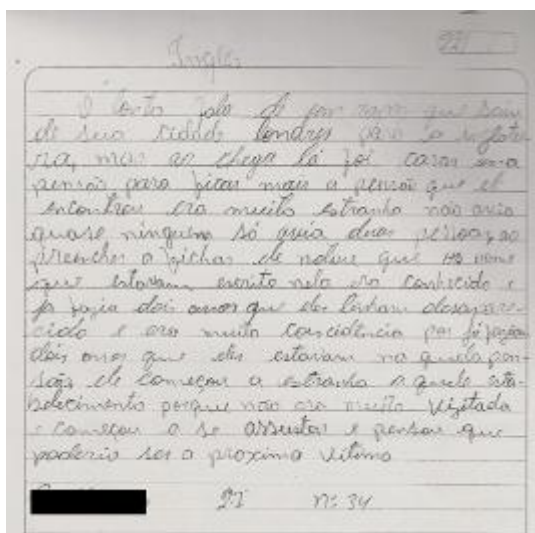 Inglês
O texto fala de um rapaz que saiu
de sua cidade londres para a inglate
rra, mas ao chega lá foi caras uma
pensão para ficar mais a pensão que el
encontrou era muito estranha não avia
quase ninguém só avia duas pessoas, ao
preencher a fichas de nome que os nome
que estavam escrito nela era conhecido e
ja fazia dois anos que eles tinham desapare
cido e era muito concidência por já fazia
dois anos que eles estavam na quela pen
são, ele começou a estranha a quele esta
belecimento porque não era muito vizitada
e começou a se assustar e pensou que
poderia ser a proxima vitima
nº 34